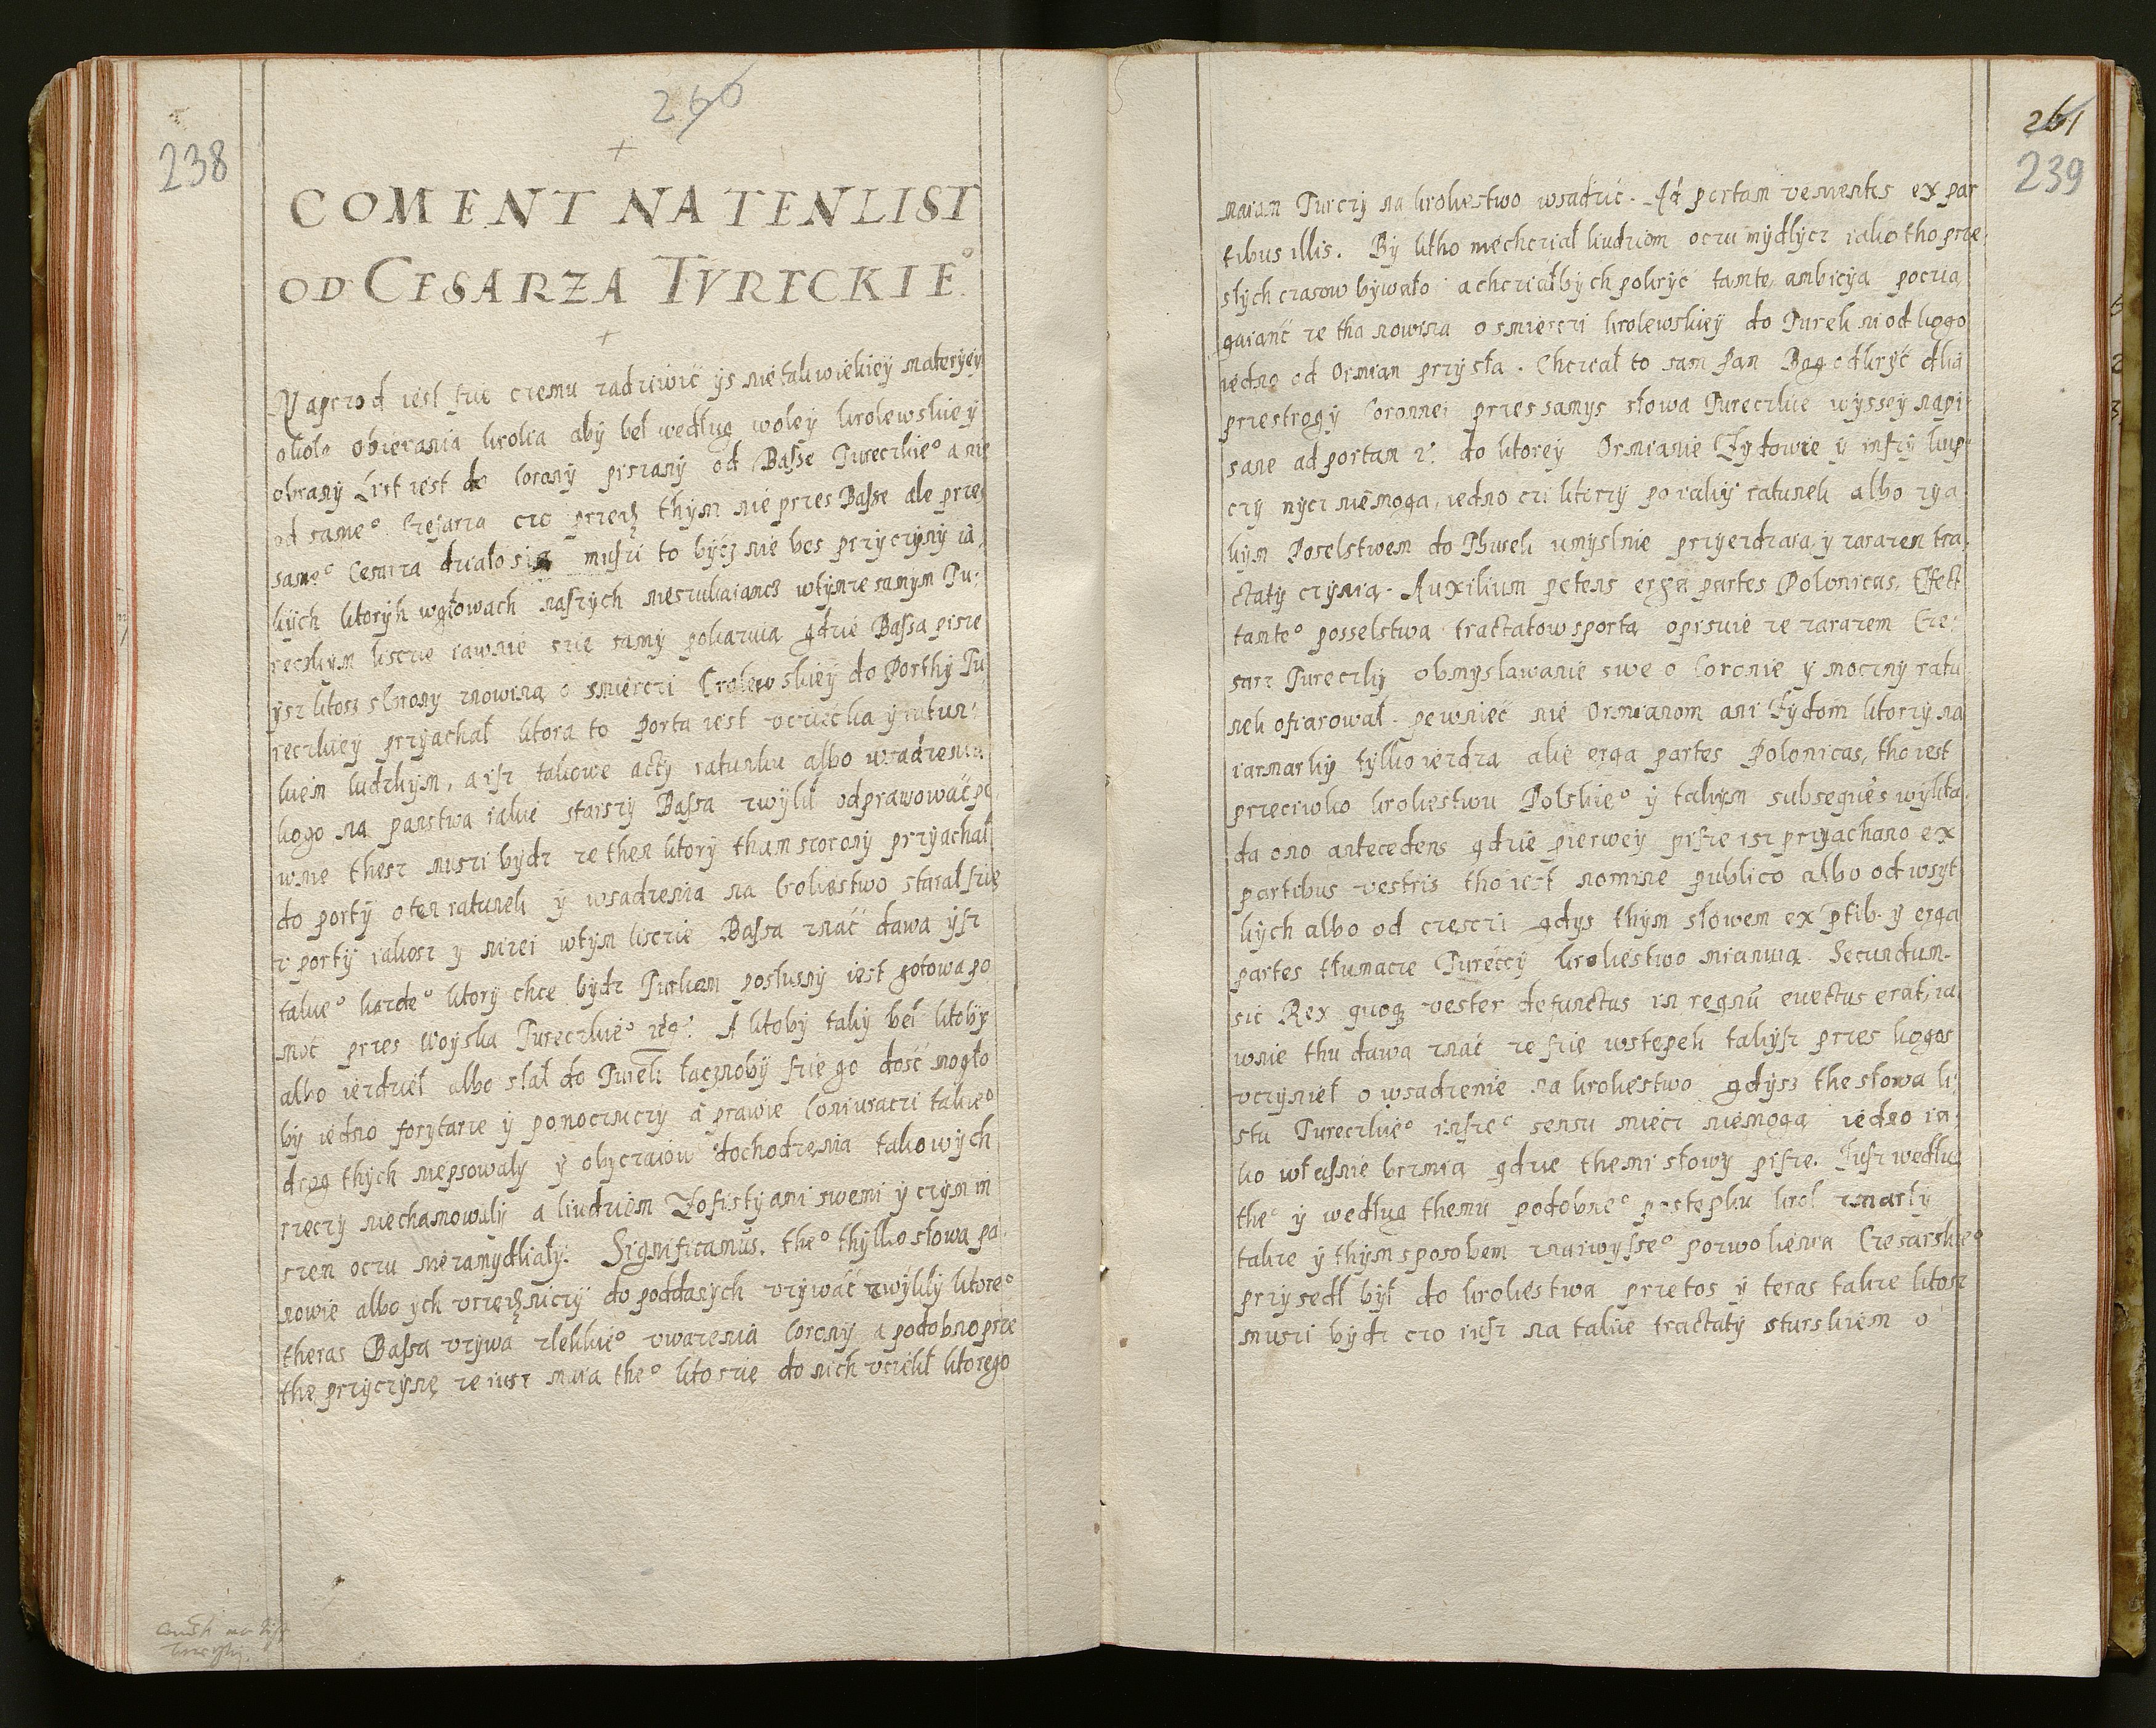 238
260
COMENT NA TEN LIST
OD CESARZA TVRECKIE°
Naperod iest sie czemu zadziwić ÿs nie takiwiekieÿ materÿeÿ
około obierania krolia abÿ beł według woleÿ krolewskieÿ
obranÿ List iest do Coronÿ pisanÿ od Basse Tureczkie° a nie
od same° Czesarza czo przed thÿm nie przes Basse ale przes
same° Cesarza działo się musi to bÿcz nie bes przÿczÿnÿ ia
kich ktorÿh w głowach naszÿch nieszukaiancz wtÿmze samÿm Tu:
reczkim liscie iawnie szie samÿ pokazuia gdzie Bassa pisze
ÿsz ktosz s Coronÿ z nowiną o smierczi Crolewskieÿ do Porthÿ Tu
reczkieÿ przÿachał ktora to Porta iest ucziecka ÿ ratun:
kiem ludzkim, a isz takowe actÿ ratunku albo wsadzenia
kogo na panstwa iakie starszÿ Bassa zwÿkł odprawować pe
wnie thesz musi bÿdz ze then ktorÿ tham s coronÿ przÿachał
do portÿ o ten ratunek ÿ wsadzenia na Croliestwo starał szię
z portÿ iakosz y nizei wtÿm liscie Bassa znać dawa ÿsz
takie° kazde° ktorÿ chce bÿdz Turkom posłusnÿ iest gotowa po
moc przes Woÿska Tureczkie° etc: A ktobÿ takÿ beł ktobÿ
albo iezdzieł albo słał do Turek łacznobÿ szie go dość mogło
bÿ iedno forÿtarze ÿ pomoczniczÿ a prawie Coniuraczi takie°
drog thÿch niepsowalÿ ÿ obÿczaiow dochodzenia takowÿch
rzeczÿ niechamowalÿ a liudziom Zofistÿami swemi ÿ czÿm in
szem oczu niezamydliałÿ. Significamus. the° thÿlko słowa pa
nowie albo ÿch urzędniczÿ do poddanÿch uzÿwać zwÿklÿ ktore°
theras Bassa uzÿwa zlekkie° uwazenia Coronÿ a podobno prze
thę przÿczÿnę ze iusz maia the° kto szie do nich uciekł ktorego
261
239
maian Turczÿ na kroliestwo wsadzić. Ad portam venientes ex par
tibus illis. Bÿ ktho niechczial liudziom oczu mÿdlÿcz iako tho prze
słÿch czasow bÿwało a chczialbÿch pokrÿć tamte ambicÿa poczia
gaianć ze tha nowina o smierczi krolewskieÿ do Turek ni od kogo
iedno od Ormian przÿsła. Chczeał to sam Pan Bog odkrÿć dlia
przestrogÿ Coronnei przes samÿs słowa Tureczkie wÿsseÿ napi
sane ad portam etc: do ktoreÿ Ormianie Zÿdowie ÿ inszÿ kup
czÿ nÿcz niemoga, iedno czi ktorzÿ po iakiÿ ratunek albo z ia
kim Poselstwem do Thurek umyslnie przÿezdzaia ÿ zarazem tra
ctatÿ czÿnią. Auxilium petens erga partes Polonicas, Effect
tamte° posselstwa tractatow s porta opisuie ze zarazem Cze:
sarz Tureczkÿ obmyslawanie swe o Coronie ÿ mocznÿ ratu
nek ofiarował. pewnieć nie Ormianom ani Zÿdom ktorzÿ na
iarmarkÿ tÿlko iezdza ale erga partes Polonicas, tho iest
przeciwko kroliestwu Polskie° ÿ takÿm subsequēs wÿkła
da ono antecedens gdzie pierweÿ pisze isz przÿachano ex
partibus vestris tho iest nomine publico albo od wsÿt
kÿch albo od czesczi gdÿs thÿm słowem ex ptib. ÿ erga
partes tłumacze Tureccÿ kroliestwo mianuią. Secundum
sic Rex quoq vester defunctus in regnū evectus erat, ia
wnie thu dawa znać ze szie wstepek takÿsz przes kogos
uczÿnieł o wsadzenie na kroliestwo gdÿsz the słowa li
stu Tureczkie° insze° sensu miecz niemoga iedno ia
ko własnie brzmia gdzie themi słowÿ pisze. Iusz według
the° ÿ według themu podobne° postepku krol zmarłÿ
takze ÿ thÿm sposobem z naiwÿsse° pozwolienia Czesarskie°
przÿsedł bÿł do kroliestwa przetos ÿ teras takze ktosz
musi bÿdz czo iusz na takie tractatÿ s turskiem o